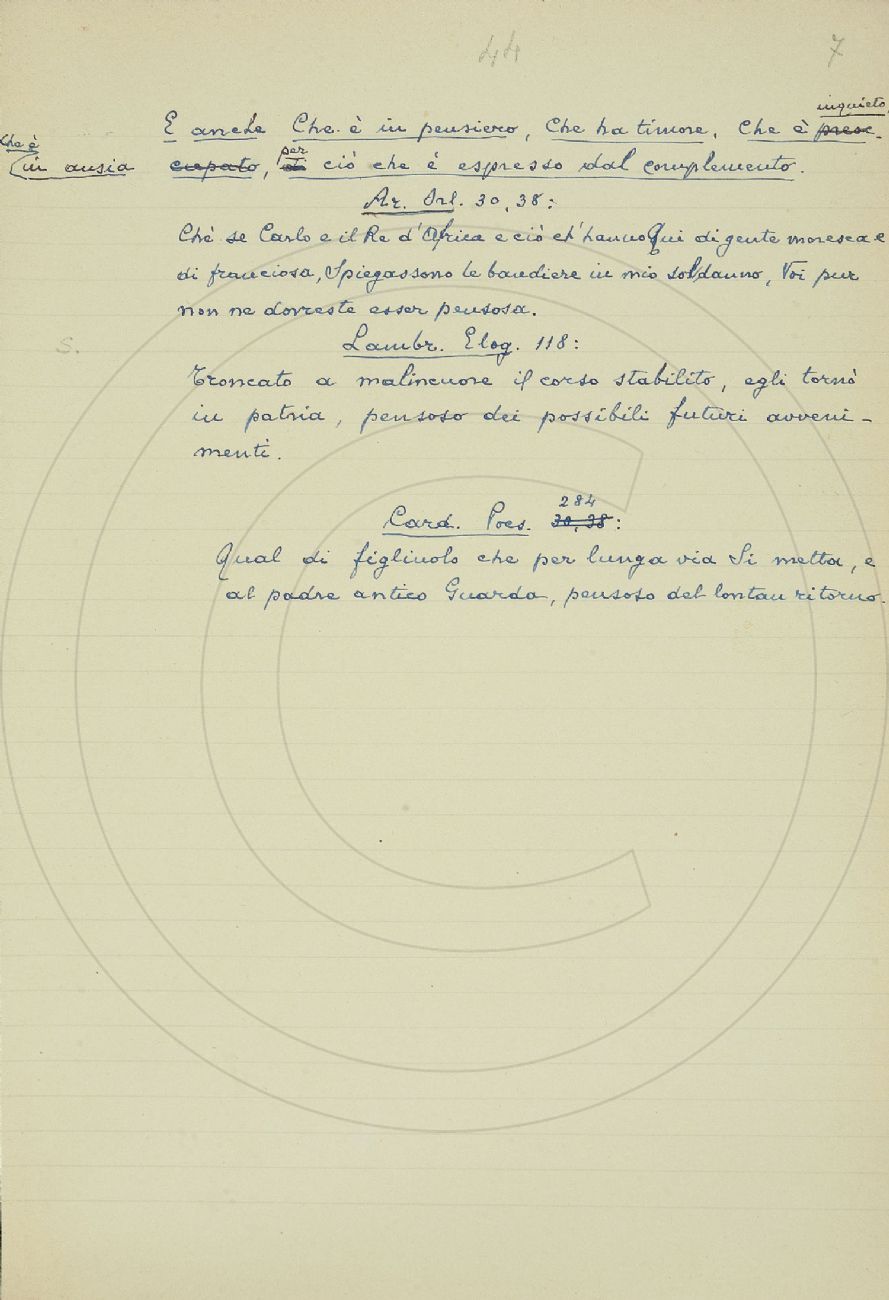 44 7
inquieto,
E anche Che è in pensiero, Che ha timore, Che è preoc-
Che è
in ansia cupato, per di ciò che è espresso dal complemento.
Ar. Orl. 30, 38:
Chè se Carlo e il Re d'Africa e ciò ch'hanno Qui di gente moresca e
di franciosa, Spiegassono le bandiere in mio sol danno, Voi pur
non ne dovreste esser pensosa.
S.
Lambr. Elog. 118:
Troncato a malincuore il corso stabilito, egli tornò
in patria, pensoso dei possibili futuri avveni-
menti.
284
Card. Poes. 30, 38:
Qual di figliuolo che per lunga via Si metta, e
al padre antico Guarda, pensoso del lontan ritorno.